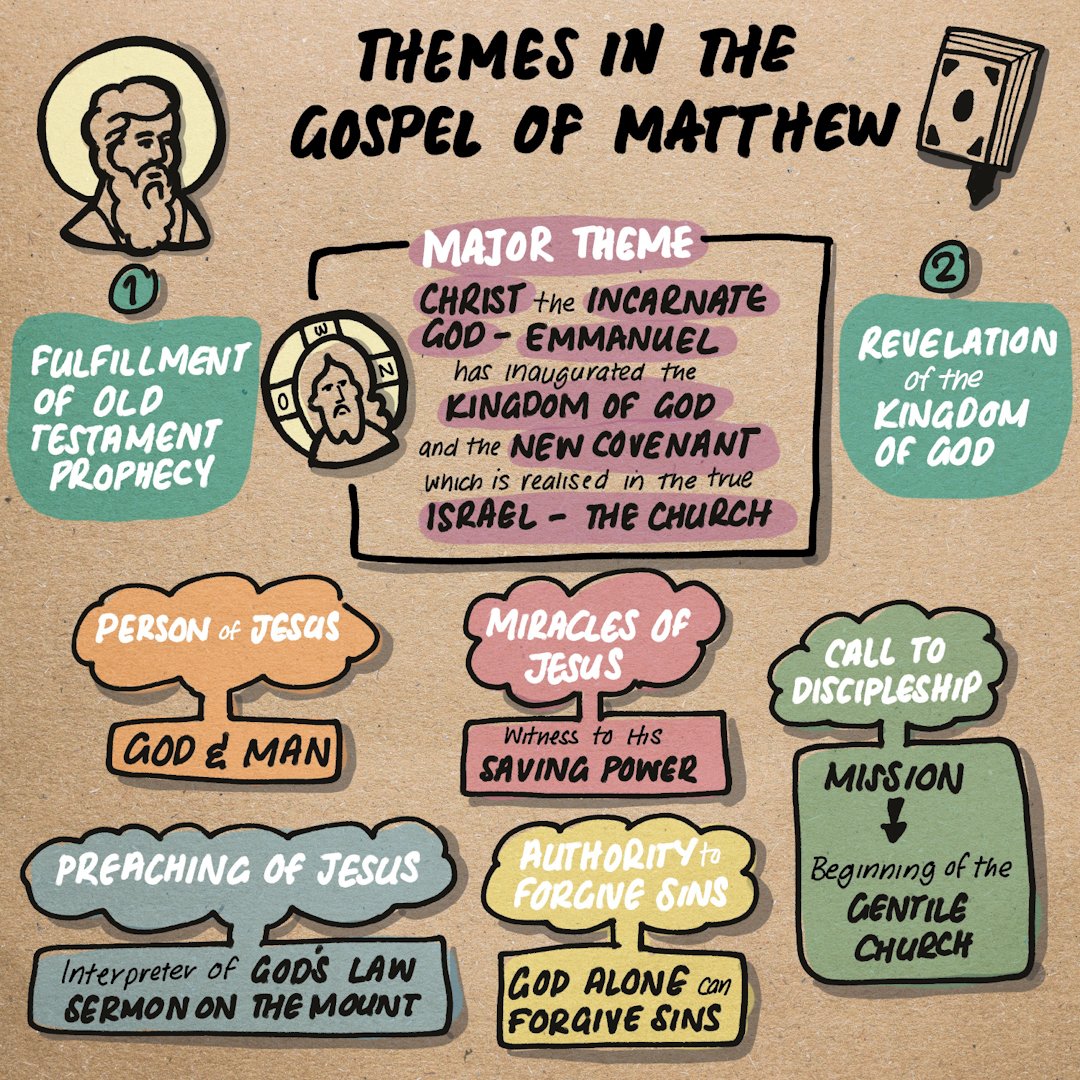 THEMES IN THE
GOSPEL OF MATTHEW
1
FULFILLMENT
OF OLD
TESTAMENT
PROPHECY
MAJOR THEME
CHRIST the INCARNATE
GOD - EMMANUEL
has inaugurated the
KINGDOM OF GOD
and the NEW COVENANT
which is realised in the true
ISRAEL - THE CHURCH
O W N
2
REVELATION
of the
KINGDOM
OF GOD
PERSON of JESUS
GOD & MAN
MIRACLES OF
JESUS
Witness to His
SAVING POWER
CALL TO
DISCIPLESHIP
MISSION
Beginning of the
GENTILE
CHURCH
PREACHING OF JESUS
Interpreter of GOD'S LAW
SERMON ON THE MOUNT
AUTHORITY to
FORGIVE SINS
GOD ALONE can
FORGIVE SINS